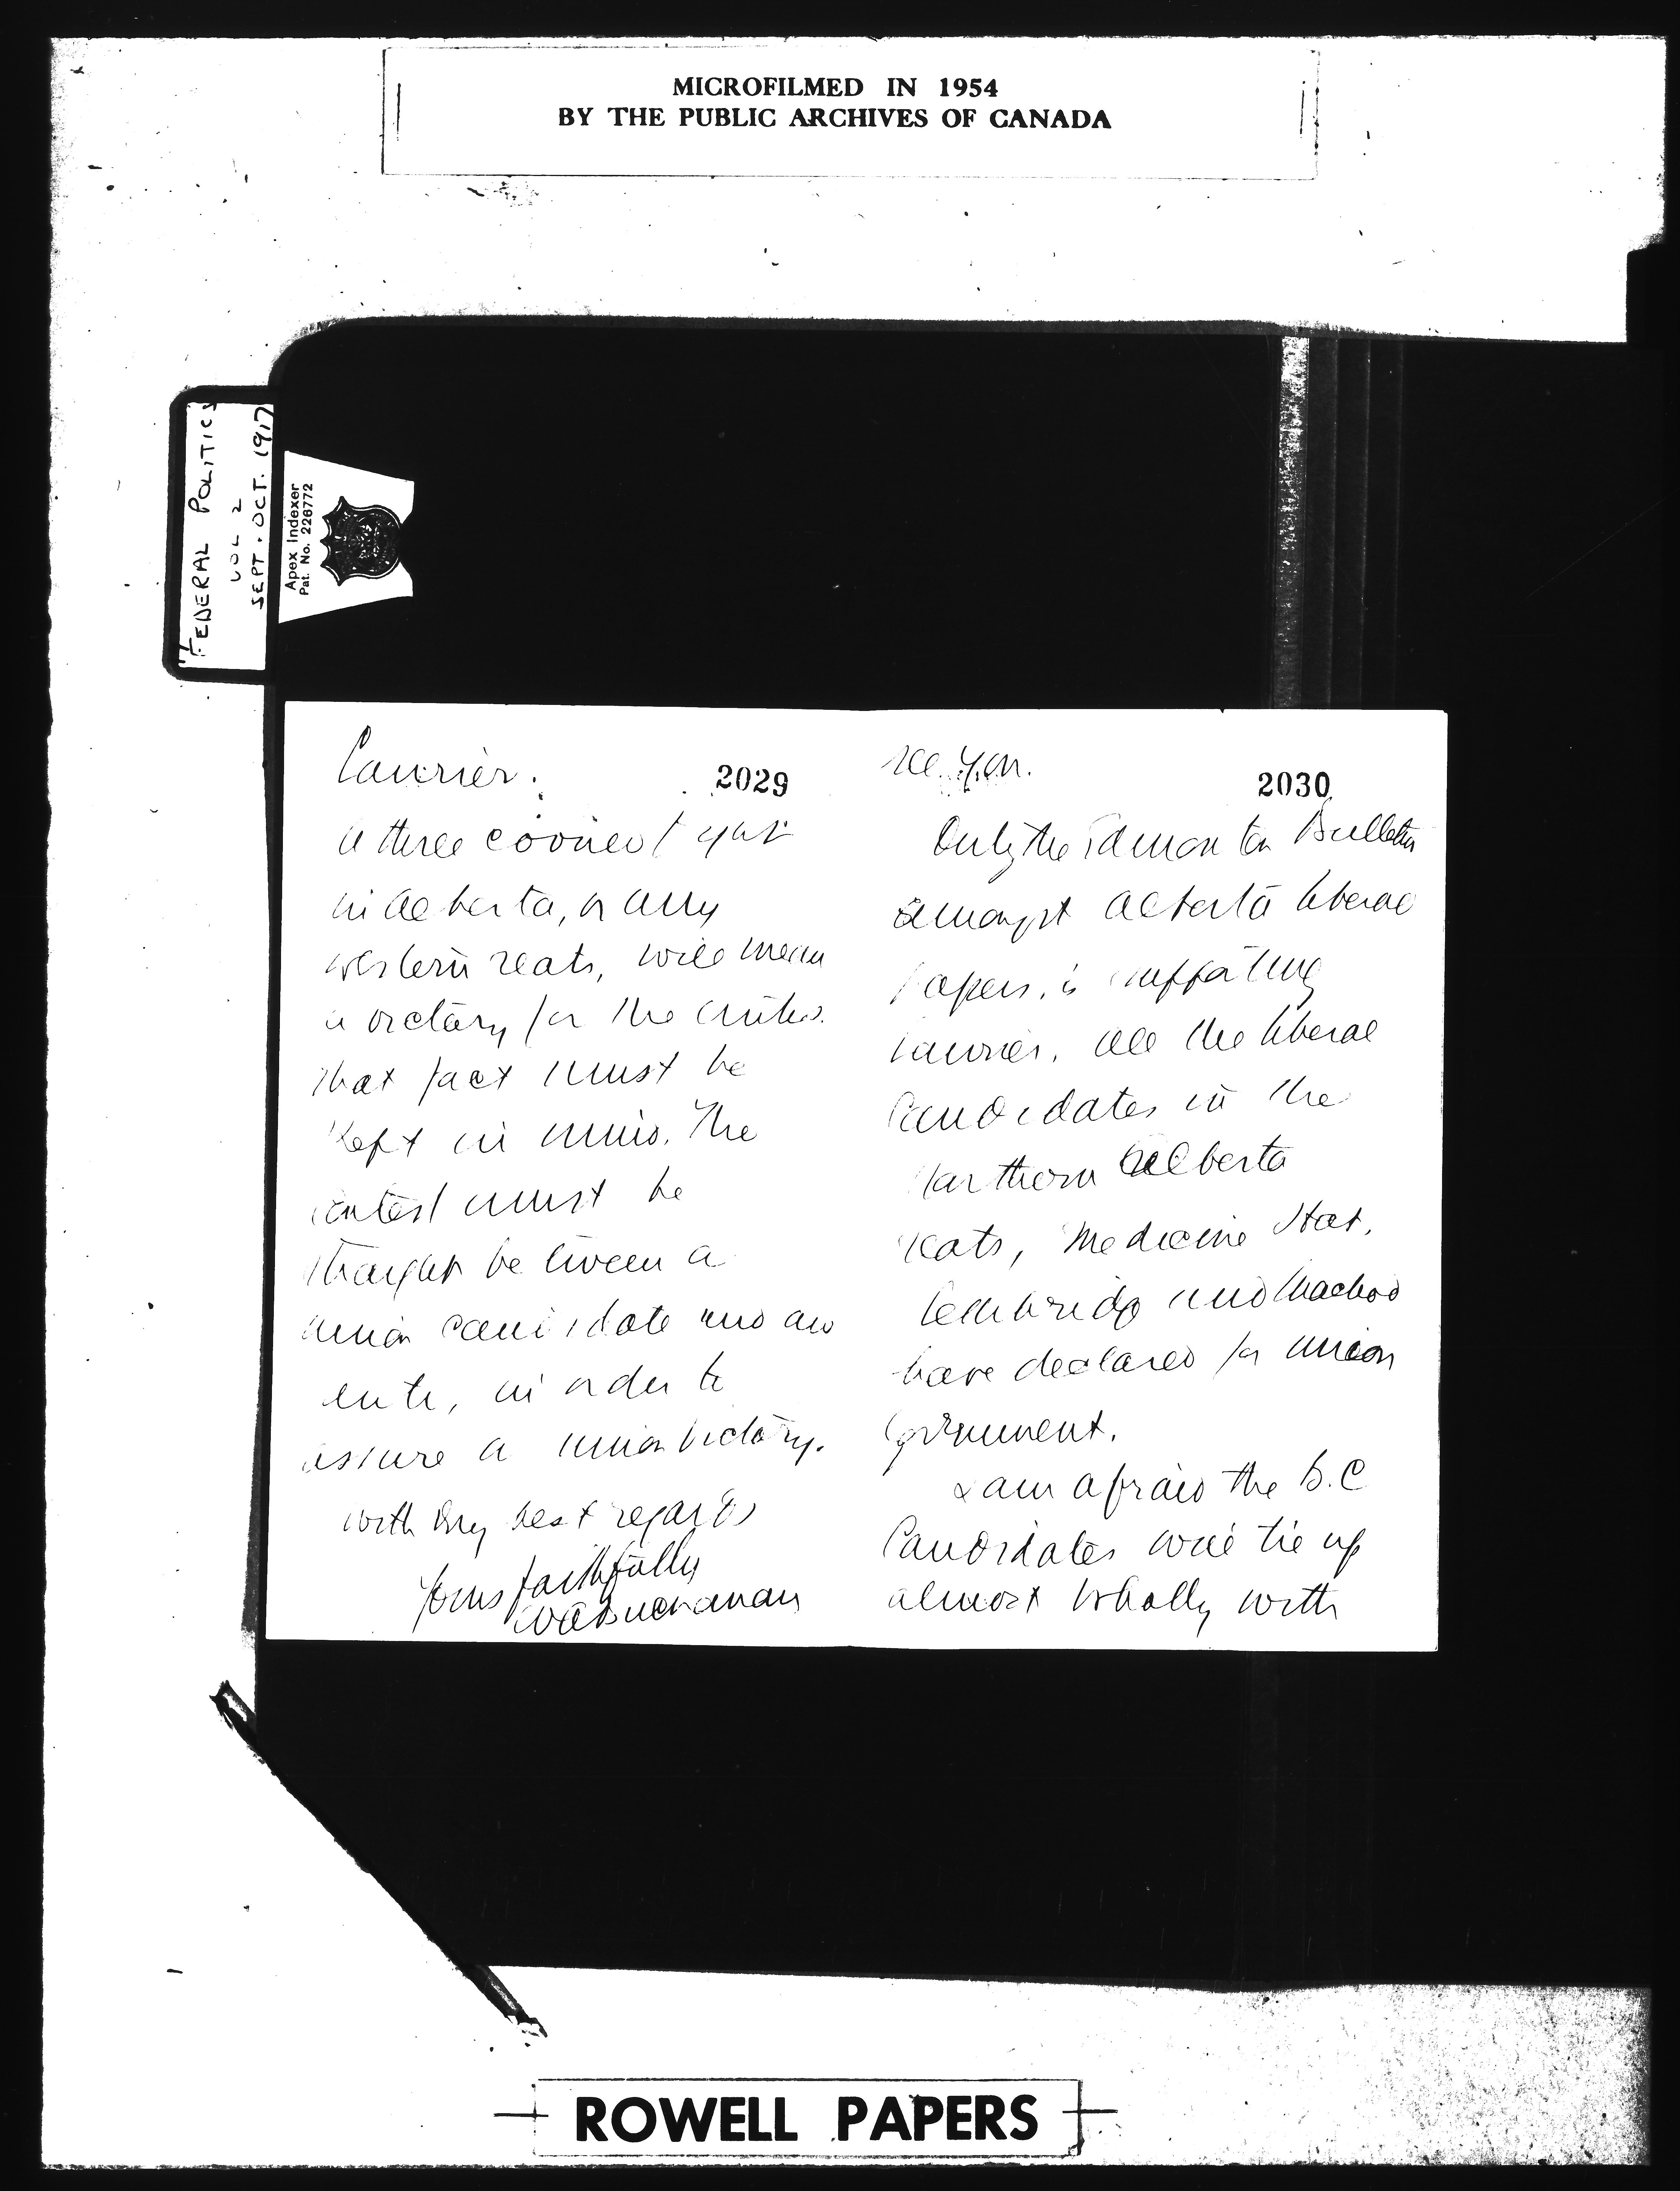 MICROFILMED IN 1954
BY THE PUBLIC ARCHIVES OF CANADA
FEDERAL POLITICS
VOL 2
SEPT. OCT. 1917
Apex Indexer
Pat. No. 226772
Laurier.
2029
a three cornered
in Alberta, or any
western seats, will mean
a victory for the antis.
That fact must be
kept in mind. The
contest must be
straight between a
union candidate and an
anti, in order to
assure a union victory.
with my best regards
Yours faithfully
WABuchanan
see you.
2030
Only the Edmonton Bulletin
amongst Alberta liberal
papers, is supporting
Laurier. All the liberal
Candidates in the
Northern Alberta
seats, Medicine Hat,
Lethbridge and Macleod
have declared for union
Government.
I am afraid the B.C
Candidates will tie up
almost wholly with
ROWELL PAPERS